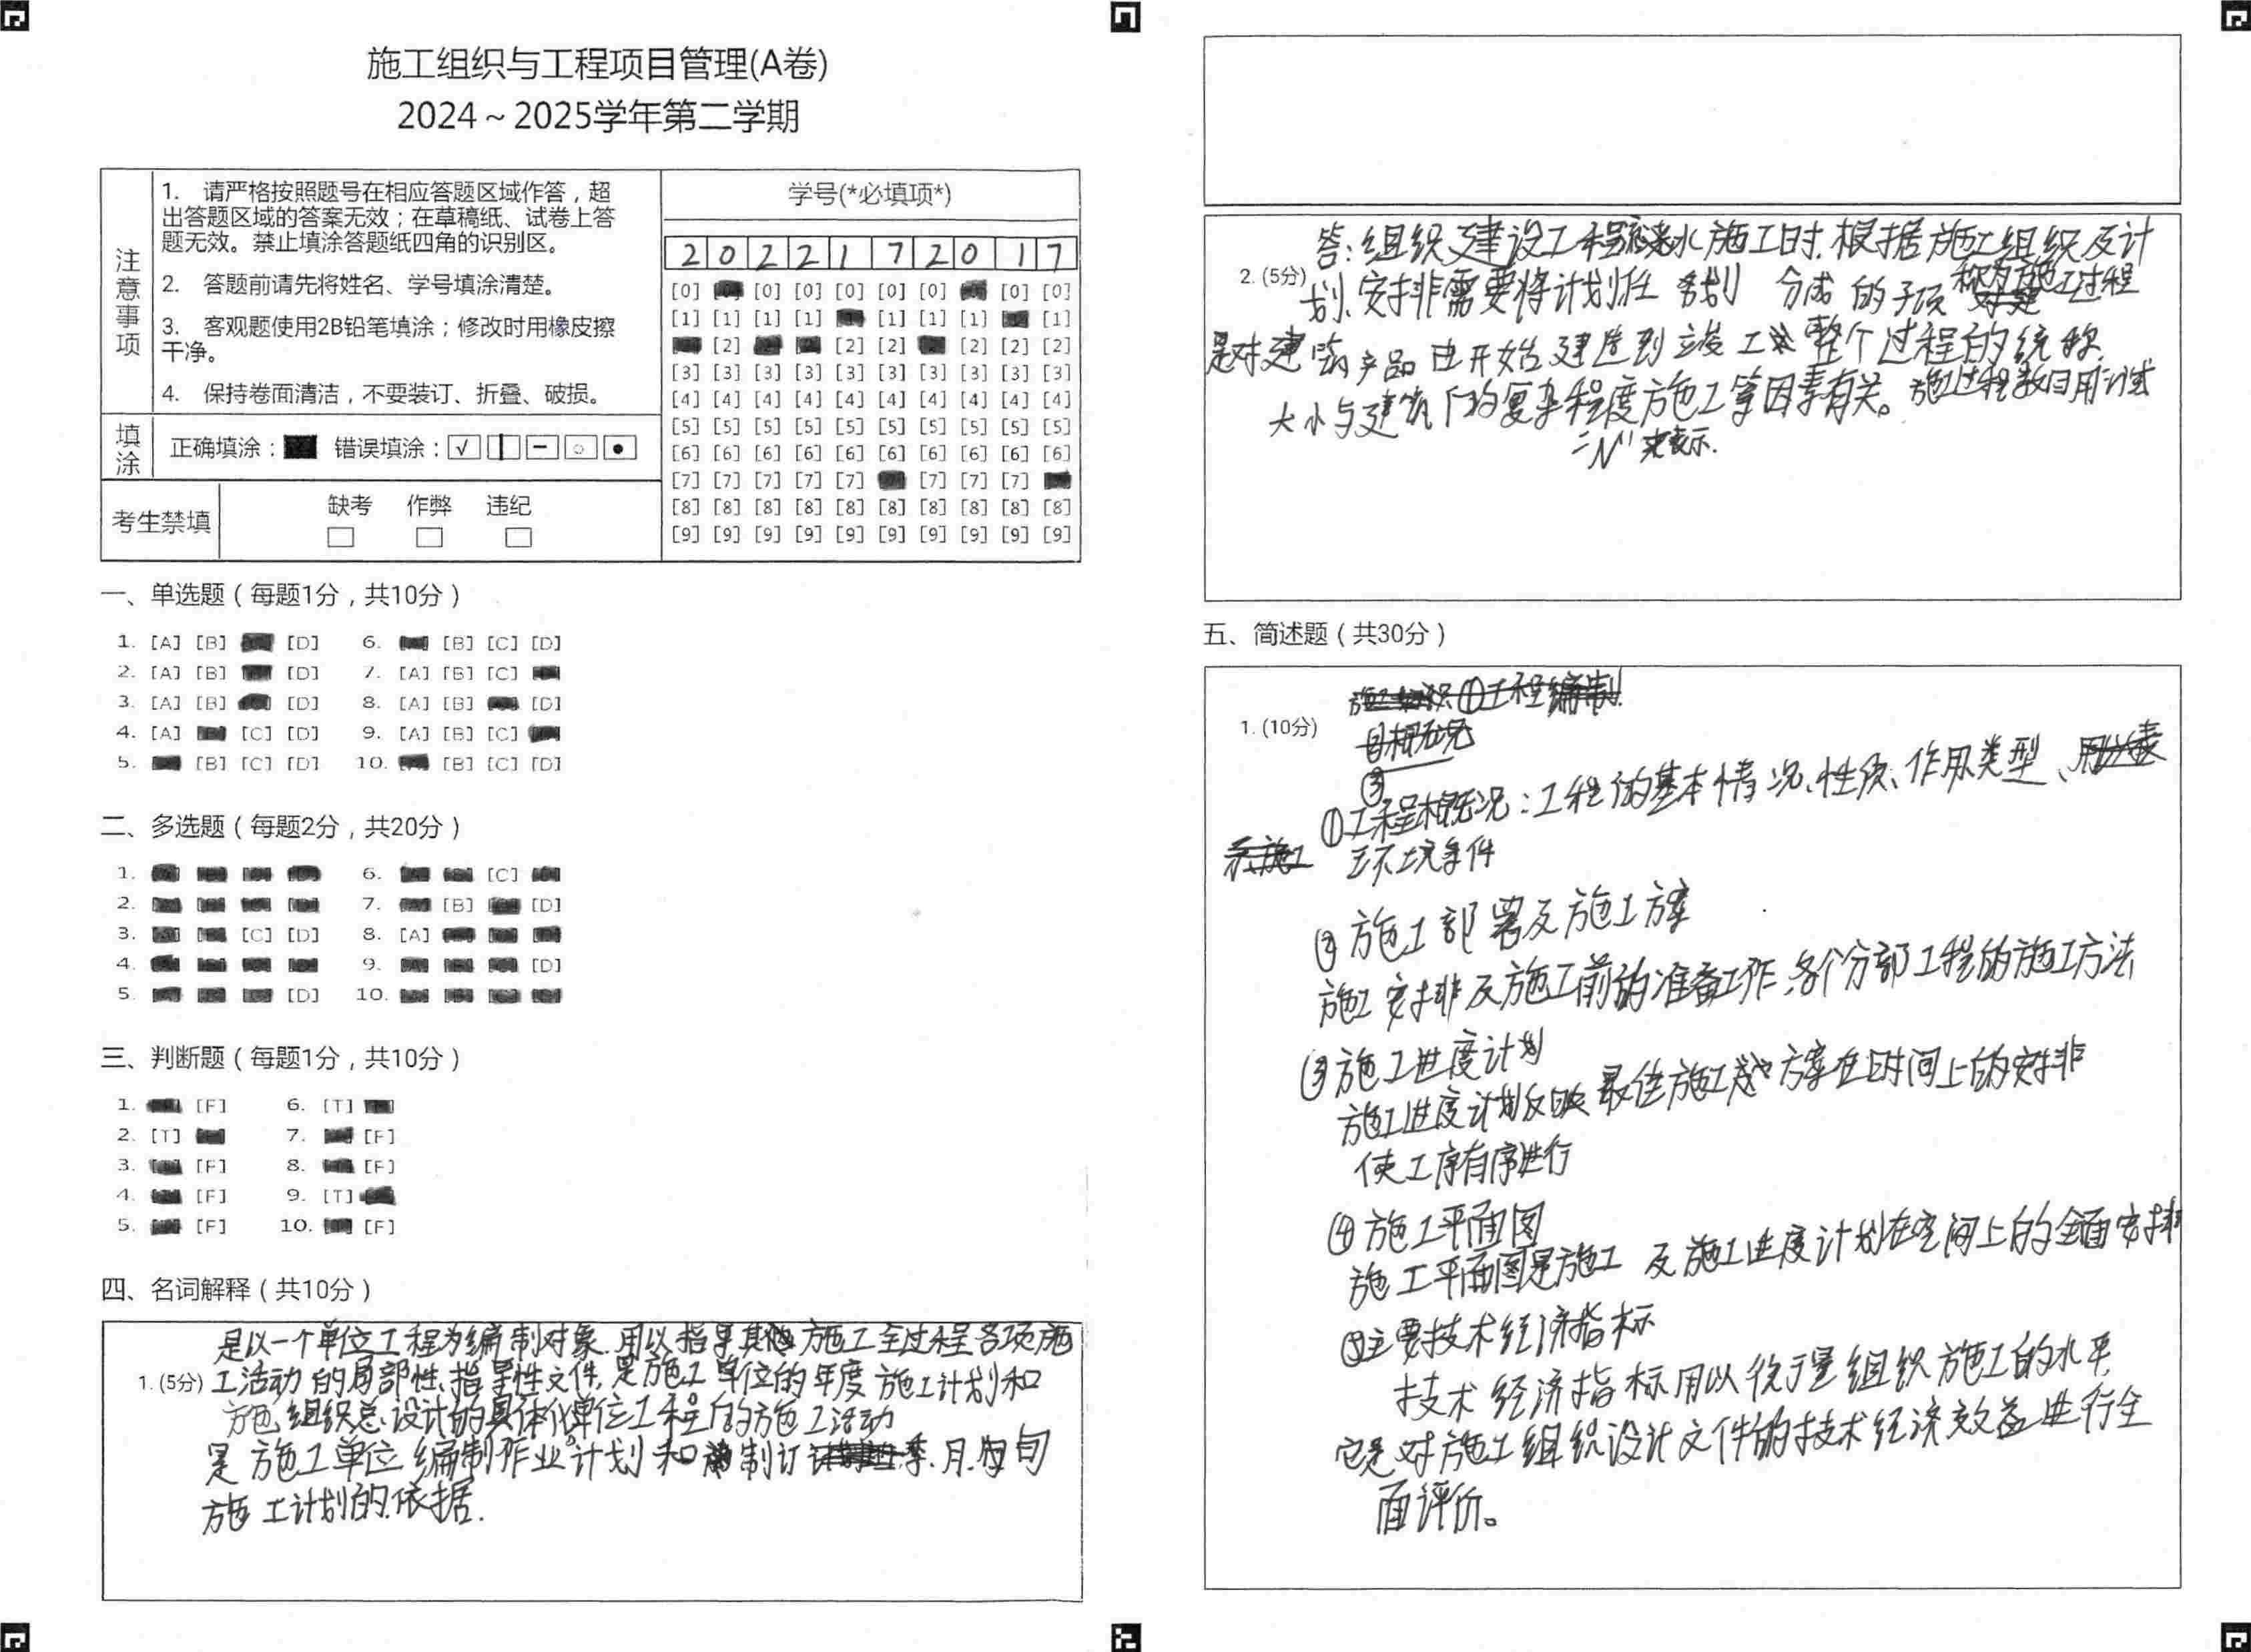 施工组织与工程项目管理(A卷)
2024～2025学年第二学期
注意事项
1. 请严格按照题号在相应答题区域作答，超
出答题区域的答案无效；在草稿纸、试卷上答
题无效。禁止填涂答题纸四角的识别区。
2. 答题前请先将姓名、学号填涂清楚。
3. 客观题使用2B铅笔填涂；修改时用橡皮擦
干净。
4. 保持卷面清洁，不要装订、折叠、破损。
填涂
正确填涂： 错误填涂：
考生禁填
缺考 作弊 违纪
学号(*必填项*)
2 0 2 2 1 7 2 0 1 7
[0] [0] [0] [0] [0] [0] [0] [0]
[1] [1] [1] [1] [1] [1] [1] [1]
[2] [2] [2] [2] [2] [2]
[3] [3] [3] [3] [3] [3] [3] [3] [3] [3]
[4] [4] [4] [4] [4] [4] [4] [4] [4] [4]
[5] [5] [5] [5] [5] [5] [5] [5] [5] [5]
[6] [6] [6] [6] [6] [6] [6] [6] [6] [6]
[7] [7] [7] [7] [7] [7] [7] [7]
[8] [8] [8] [8] [8] [8] [8] [8] [8] [8]
[9] [9] [9] [9] [9] [9] [9] [9] [9] [9]
一、单选题（每题1分，共10分）
1. [A] [B] [D] 6. [B] [C] [D]
2. [A] [B] [D] 7. [A] [B] [C]
3. [A] [B] [D] 8. [A] [B] [D]
4. [A] [C] [D] 9. [A] [B] [C]
5. [B] [C] [D] 10. [B] [C] [D]
二、多选题（每题2分，共20分）
1. 6. [C]
2. 7. [B] [D]
3. [C] [D] 8. [A]
4. 9. [D]
5. [D] 10.
三、判断题（每题1分，共10分）
1. [F] 6. [T]
2. [T] 7. [F]
3. [F] 8. [F]
4. [F] 9. [T]
5. [F] 10. [F]
四、名词解释（共10分）
1. (5分)
是以一个单位工程为编制对象.用以指导其施工全过程各项施
工活动的局部性、指导性文件,是施工单位的年度施工计划和
施组织总设计的具体化单位工程的施工活动
是施工单位编制作业计划和制订季.月.旬
施工计划的依据.
2. (5分)
答:组织建设工程流水施工时.根据施工组织及计
划安排需要将计划任务划分成的子项称为施工过程
是对建筑产品由开始建造到竣工整个过程的统称.
大小与建筑的复杂程度施工等因素有关。施工过程数目用
"N"来表示.
五、简述题（共30分）
1. (10分)
①工程概况:工程的基本情况、性质、作用类型、
环境条件
②施工部署及施工方案
施工安排及施工前的准备工作、各个分部工程的施工方法
③施工进度计划
施工进度计划反映最佳施工方案在时间上的安排
使工序有序进行
④施工平面图
施工平面图是施工及施工进度计划在空间上的全面安排
⑤主要技术经济指标
技术经济指标用以衡量组织施工的水平,
它是对施工组织设计文件的技术经济效益进行全
面评价。